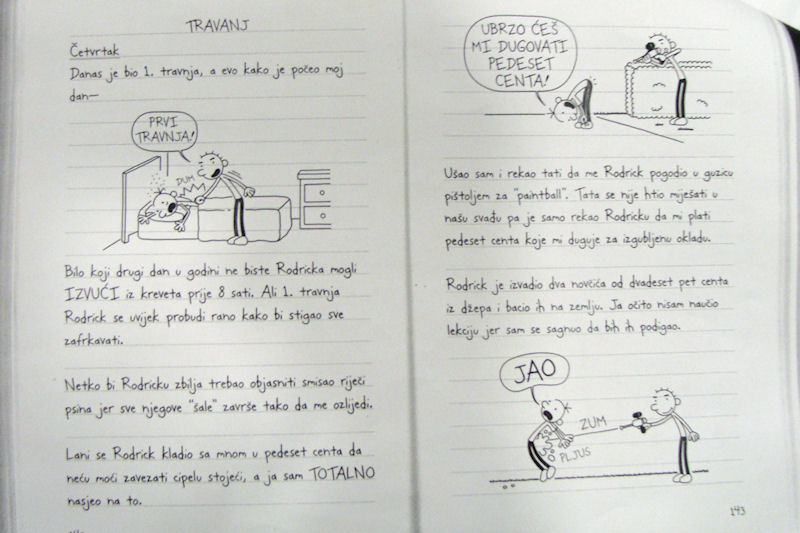 TRAVANJ
Četvrtak
Danas je bio 1. travnja, a evo kako je počeo moj
dan—
PRVI
TRAVNJA!
DUM
Bilo koji drugi dan u godini ne biste Rodricka mogli
IZVUĆI iz kreveta prije 8 sati. Ali 1. travnja
Rodrick se uvijek probudi rano kako bi stigao sve
zafrkavati.
Netko bi Rodricku zbilja trebao objasniti smisao riječi
psina jer sve njegove "šale" završe tako da me ozlijedi.
Lani se Rodrick kladio sa mnom u pedeset centa da
neću moći zavezati cipelu stojeći, a ja sam TOTALNO
nasjeo na to.
UBRZO ĆEŠ
MI DUGOVATI
PEDESET
CENTA!
Ušao sam i rekao tati da me Rodrick pogodio u guzicu
pištoljem za "paintball". Tata se nije htio miješati u
našu svađu pa je samo rekao Rodricku da mi plati
pedeset centa koje mi duguje za izgubljenu okladu.
Rodrick je izvadio dva novčića od dvadeset pet centa
iz džepa i bacio ih na zemlju. Ja očito nisam naučio
lekciju jer sam se sagnuo da bih ih podigao.
JAO
ZUM
PLJUS
143